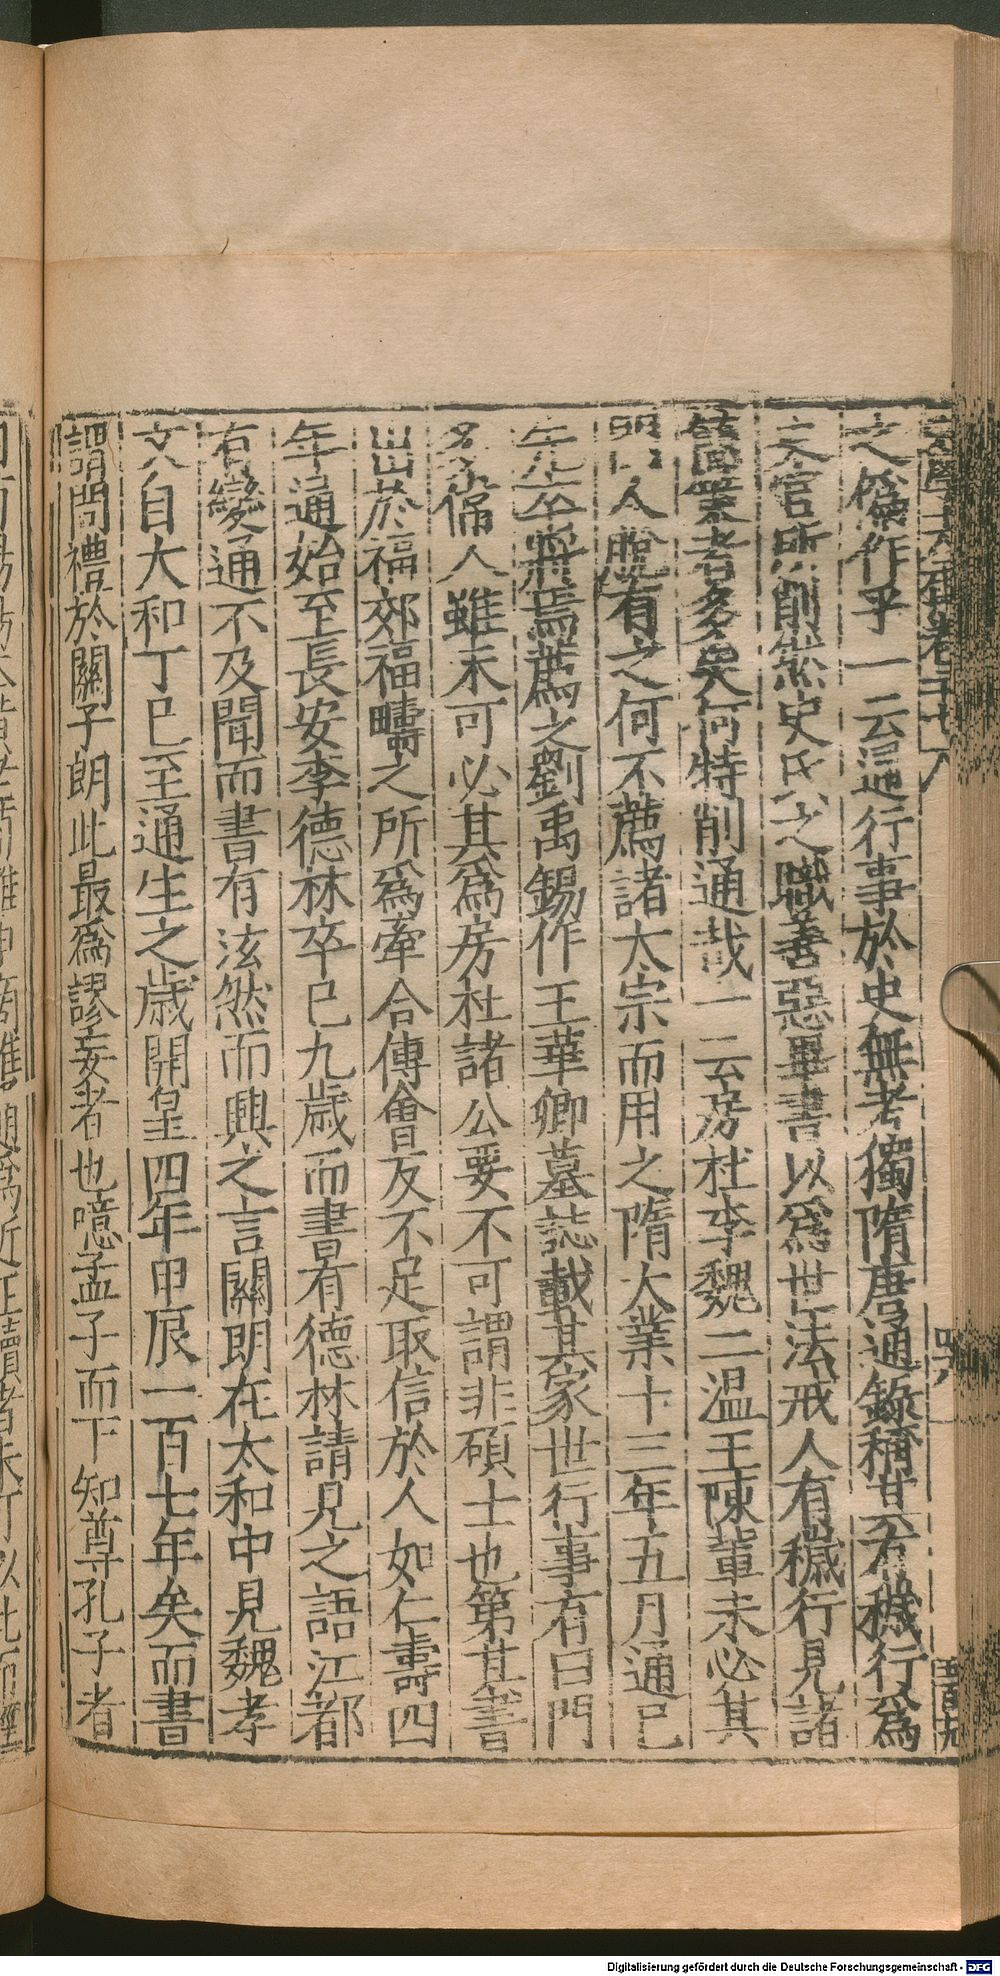 之僞作乎一云通行事於史無考獨隋唐通錄稱其有穢行爲
史官所削然史氏之職善惡畢書以爲世法戒人有穢行見諸
簡策者多矣何特削通哉一云房杜李魏二温王陳輩未必其
門人脫有之何不薦諸太宗而用之隋大業十三年五月通已
先卒將焉薦之劉禹錫作王華卿墓誌載其家世行事有曰門
多偉人雖未可必其爲房杜諸公要不可謂非碩士也第其書
出於福郊福畤之所爲牽合傅會反不足取信於人如仁壽四
年通始至長安李德林卒已九歲而書有德林請見之語江都
有變通不及聞而書有泫然而興之言關朗在太和中見魏孝
文自大和丁巳至通生之歲開皇四年甲辰一百七年矣而書
謂問禮於關子朗此最爲謬妄者也噫孟子而下知尊孔子者
Digitalisierung gefördert durch die Deutsche Forschungsgemeinschaft - DFG